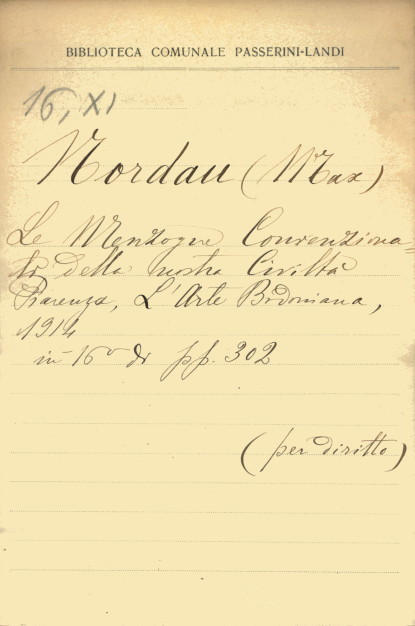 BIBLIOTECA COMUNALE PASSERINI-LANDI
16, XI
Nordau (Max)
Le Menzogne Convenziona=
li della nostra Civiltà
Piacenza, L'Arte Bodoniana,
1914
in 16º di pp. 302
(per diritto)